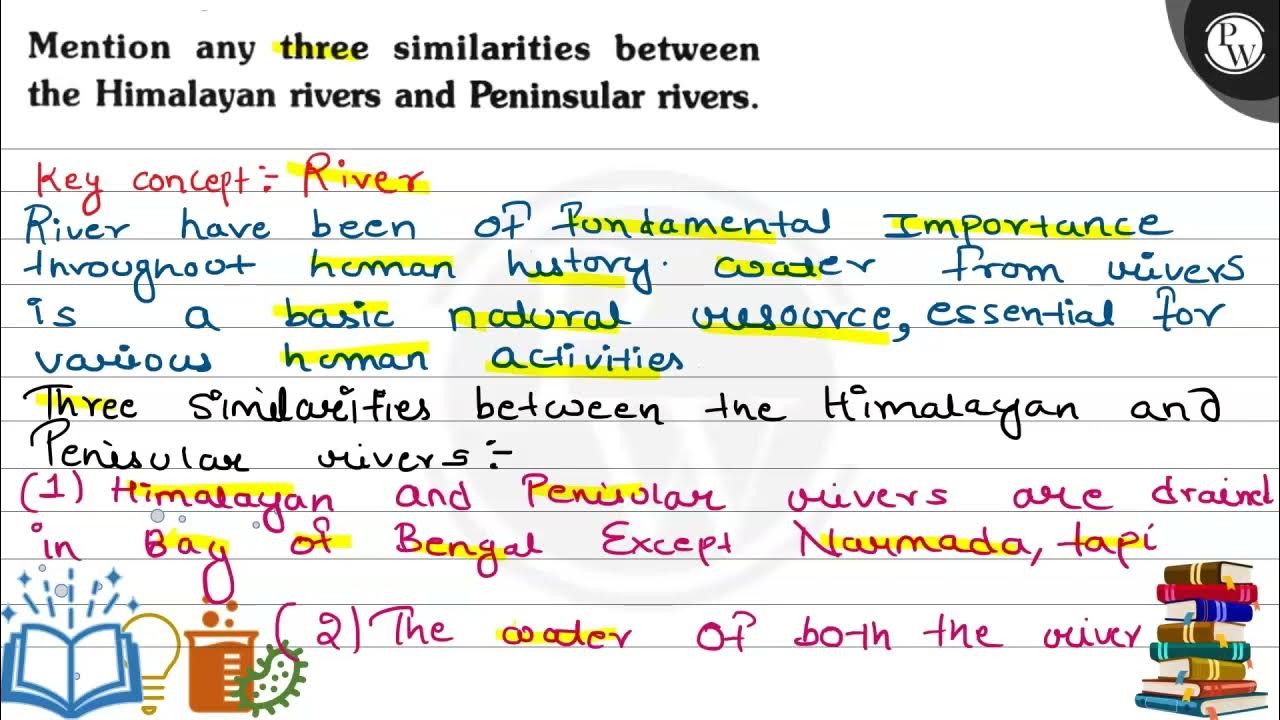 Mention any three similarities between
the Himalayan rivers and Peninsular rivers.
PW
Key concept:- River
River have been of fundamental Importance
throughout human history. water from rivers
is a basic natural resource, essential for
various human activities
Three similarities between the Himalayan and
Penisular rivers:-
(1) Himalayan and Penisular rivers are draind
in Bay of Bengal Except Narmada, tapi
(2) The water of both the river